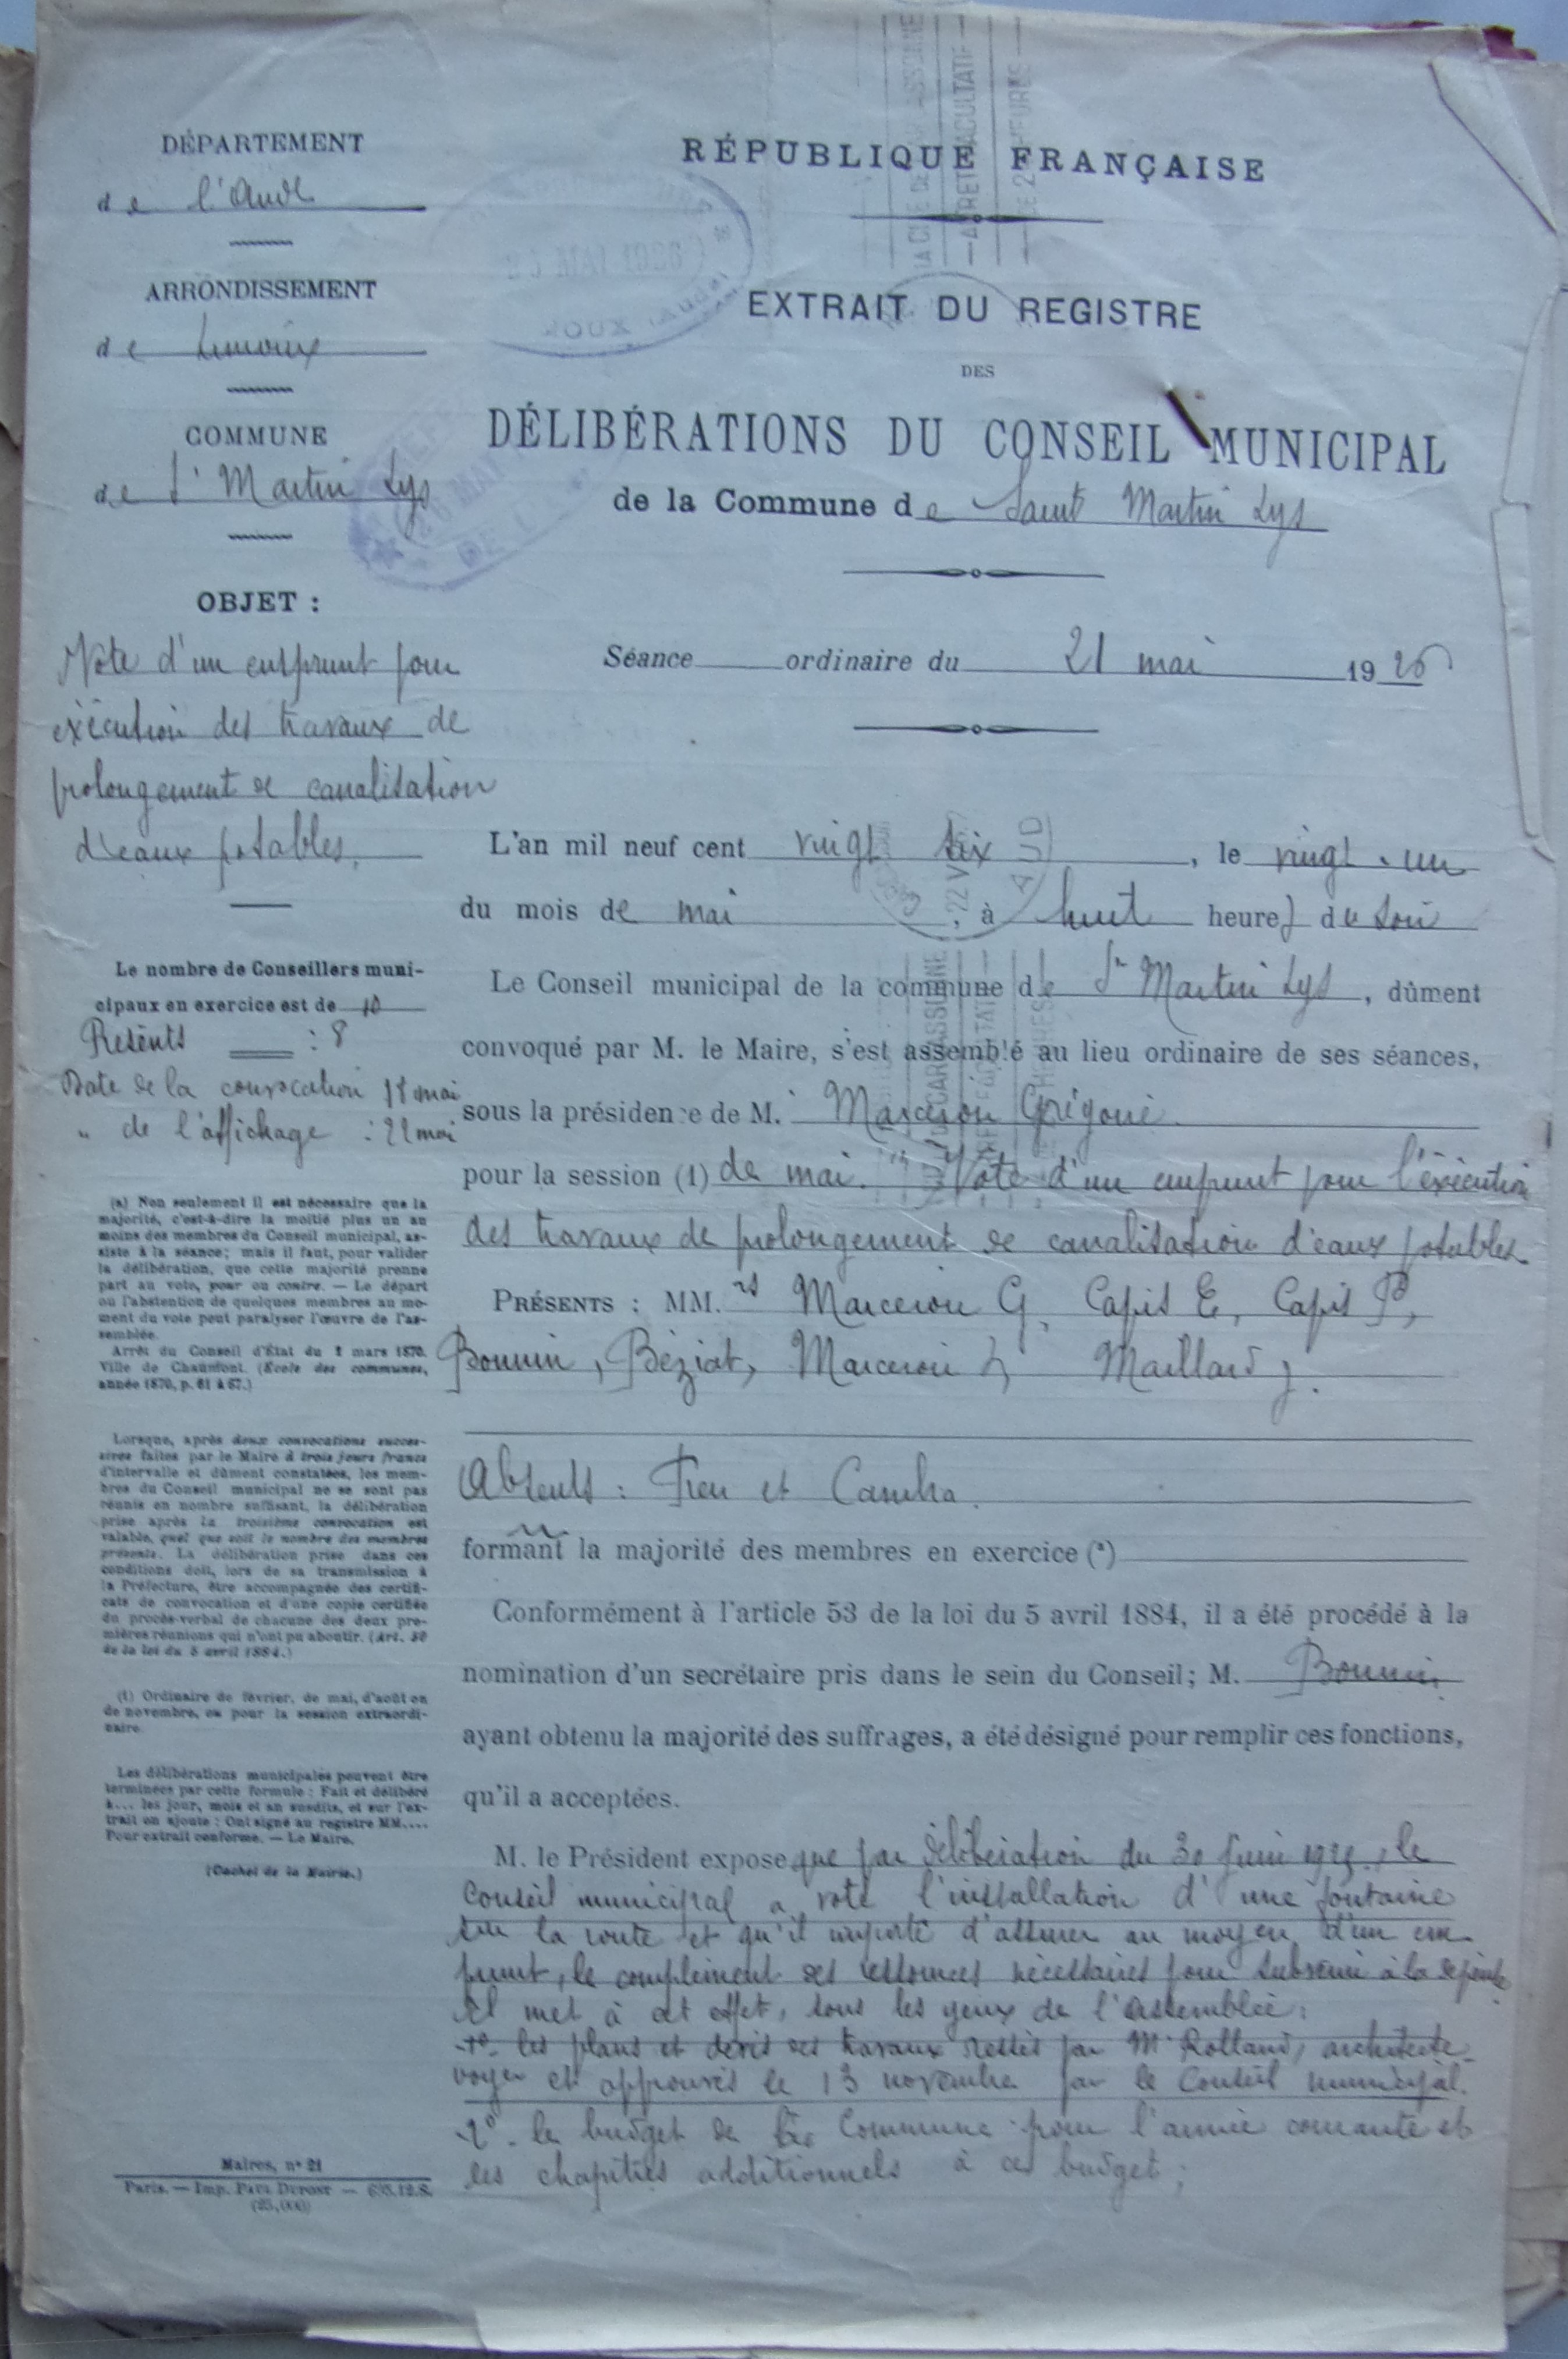 DÉPARTEMENT
de l'Aude
ARRONDISSEMENT
de Limoux
COMMUNE
de St Martin Lys
OBJET :
Vote d'un emprunt pour
exécution des travaux de
prolongement de canalisation
d'eaux potables.
Le nombre de Conseillers muni-
cipaux en exercice est de 10
Présents : 8
Date de la convocation mai
" de l'affichage : 22 mai
(a) Non seulement il est nécessaire que la
majorité, c'est-à-dire la moitié plus un au
moins des membres du Conseil municipal, as-
siste à la séance; mais il faut, pour valider
la délibération, que cette majorité prenne
part au vote, pour ou contre. — Le départ
ou l'abstention de quelques membres au mo-
ment du vote peut paralyser l'œuvre de l'as-
semblée.
Arrêt du Conseil d'État du mars 1870.
Ville de Chaumont. (École des communes,
année 1870, p. 61 à 67.)
Lorsque, après deux convocations succes-
sives faites par le Maire à trois jours francs
d'intervalle et dûment constatées, les mem-
bres du Conseil municipal ne se sont pas
réunis en nombre suffisant, la délibération
prise après la troisième convocation est
valable, quel que soit le nombre des membres
présents. La délibération prise dans ces
conditions doit, lors de sa transmission à
la Préfecture, être accompagnée des certifi-
cats de convocation et d'une copie certifiée
du procès-verbal de chacune des deux pre-
mières réunions qui n'ont pu aboutir. (Art. 50
de la loi du 5 avril 1884.)
(1) Ordinaire de février, de mai, d'août ou
de novembre, ou pour la session extraordi-
naire.
Les délibérations municipales peuvent être
terminées par cette formule : Fait et délibéré
à... les jour, mois et an susdits, et sur l'ex-
trait on ajoute : Ont signé au registre MM....
Pour extrait conforme. — Le Maire.
(Cachet de la Mairie.)
Maires, n° 21
Paris. — Imp. PAUL DUPONT — 695.12.S.
RÉPUBLIQUE FRANÇAISE
EXTRAIT DU REGISTRE
DES
DÉLIBÉRATIONS DU CONSEIL MUNICIPAL
de la Commune de Saint Martin Lys
Séance ordinaire du 21 mai 1926
L'an mil neuf cent vingt six, le vingt-un
du mois de mai, à huit heures du soir
Le Conseil municipal de la commune de St Martin Lys, dûment
convoqué par M. le Maire, s'est assemblé au lieu ordinaire de ses séances,
sous la présidence de M. Marceron Grégoire.
pour la session (1) de mai. Vote d'un emprunt pour l'éxécution
des travaux de prolongement de canalisation d'eaux potables
PRÉSENTS : MM.rs Marceron G, Capis E, Capis P,
Bonnin, Béziat, Marceron Maillard J.
Absents : et
formant la majorité des membres en exercice (a)
Conformément à l'article 53 de la loi du 5 avril 1884, il a été procédé à la
nomination d'un secrétaire pris dans le sein du Conseil; M. Bonnin
ayant obtenu la majorité des suffrages, a été désigné pour remplir ces fonctions,
qu'il a acceptées.
M. le Président expose que par délibération du 30 juin 1925, le
Conseil municipal a voté l'installation d'une fontaine
sur la route et qu'il importe d'assurer au moyen d'un em-
prunt, le complément des ressources nécessaires pour subvenir à la dépense.
Il met à cet effet, sous les yeux de l'assemblée :
1°- les plans et devis des travaux dressés par Mr Rolland, architecte-
voyer et approuvés le 13 novembre par le Conseil municipal.
2°- le budget de la Commune pour l'année courante et
les chapitres additionnels à ce budget ;